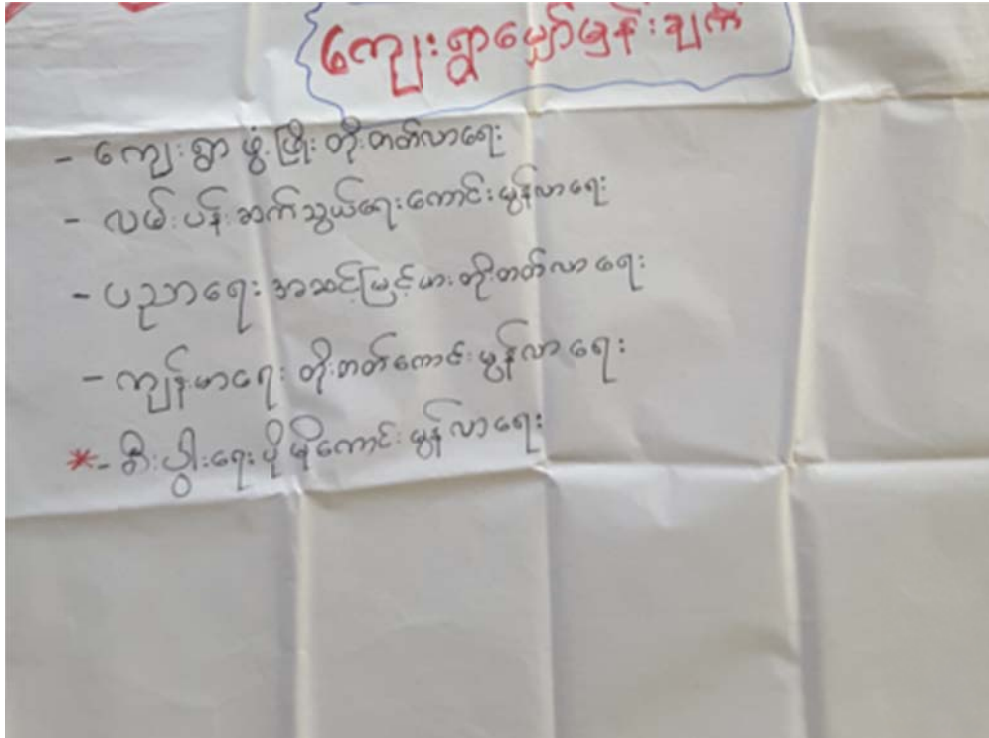 ကျေးရွာမျှော်မှန်းချက်
- ကျေးရွာ ဖွံ့ဖြိုး တိုးတတ်လာရေး
- လမ်းပန်းဆက်သွယ်ရေးကောင်းမွန်လာရေး
- ပညာရေး အဆင့်မြင့်မားတိုးတတ်လာရေး
- ကျန်းမာရေး တိုးတတ်ကောင်းမွန်လာရေး
*- စီးပွါးရေးပိုမိုကောင်းမွန်လာရေး